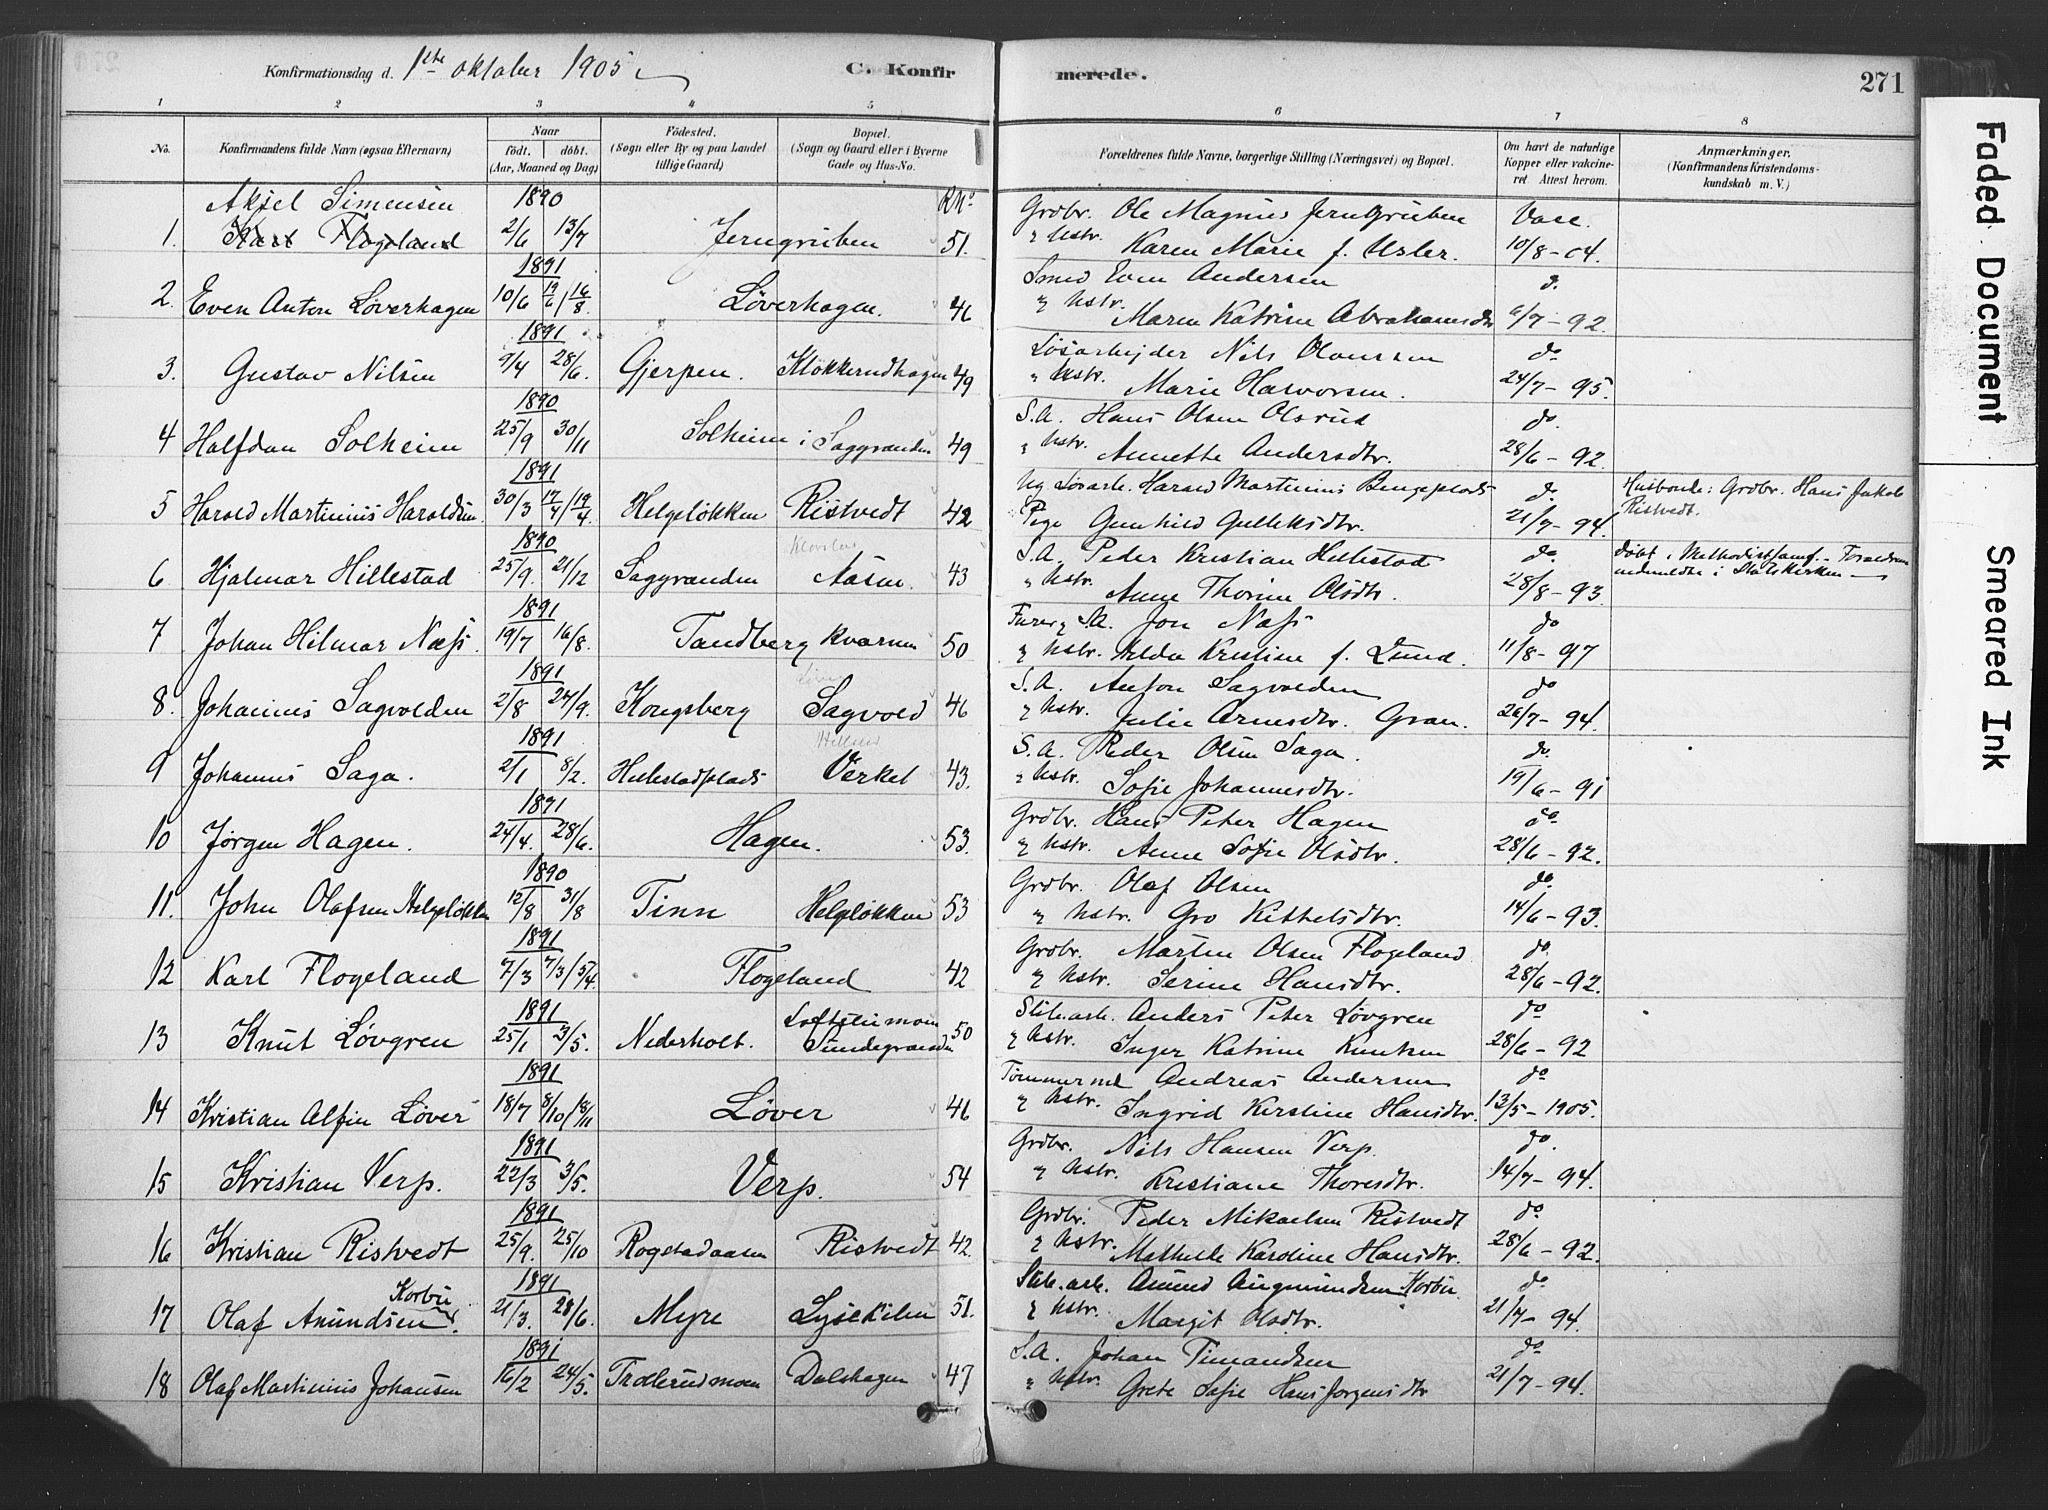 Konfirmationsdag d. 1ste oktober 1905
C. Konfirmerede.
271
1 2 3 4 5 6 7 8
No.
Konfirmandens fulde Navn (ogsaa Efternavn)
Naar
födt. döbt.
(Aar, Maaned og Dag)
Födested.
(Sogn eller By og paa Landet
tillige Gaard)
Bopæl.
(Sogn og Gaard eller i Byerne
Gade og Hus-No.
Forældrenes fulde Navne, borgerlige Stilling (Næringsvei) og Bopæl.
Om havt de naturlige
Kopper eller vakcine-
ret Attest herom.
Anmærkninger.
(Konfirmandens Kristendoms-
kundskab m. V.)
Aksel Simensen 1890 Grdbr. Ole Magnus Jerngruben Vacc.
1. Karl Flogeland 2/6 13/7 Jerngruben 51. Hstr. Karen Marie f. Usler. 10/8-04.
1891 Smed Even Andersen
2. Even Anton Løverhagen 10/6 16/8 Løverhagen. 46 Hstr. Maren Katrine Abrahamsdtr 6/7-92
1891 Løsarbejder Nils Olaussen do
3. Gustav Nilsen 9/4 28/6 Gjerpen. Klokkerudhagen 49 Hstr. Marie Halvorsen. 24/7-95.
1890 S.A. Hans Olsen Olsrud do
4 Halfdan Solheim 25/9 30/11 Solheim i Saggrenden 49 Hstr. Annette Andersdtr. 28/6-92.
1891 Ug Løsarb. Harald Martinius do Husbonde: Grdbr. Hans Jakob
5 Harald Martinius Haraldsen 30/3 17/4 Helgeløkken Ristvedt 42 Pige Gunhild Gulleksdtr. 21/7-94. Ristvedt.
1890 S.A. Peder Kristian Hellestad do Døbt i Methodistsamf. Forældrene
6 Hjalmar Hillestad 25/9. 21/12 Saggrenden Aasen 43 Hstr. Anne Thorine Olsdtr. 28/8-93. indmeldte i Statskirken
1891 S.A. Jon Næss do
7 Johan Hilmar Næss. 19/7 16/8. Tandberg Kværnen 50 Hstr. Helda Kristine f. Lund. 11/8-97
1891 S.A. Anton Sagvolden do
8. Johannes Sagvolden 2/8 27/9. Kongsberg Sagvold 46 Hstr. Julie Arnesdtr. Gran. 26/7-94.
1891 S.A. Peder Olsen Saga. do
9 Johannes Saga. 2/1 8/2. Hellestadplads Verket 43. Hstr. Sofie Johannesdtr. 19/6-91
1891 Grdbr. Hans Peter Hagen do
10 Jørgen Hagen. 24/4. 28/6. Hagen. 53. Hstr. Anne Sofie Olsdtr. 28/6-92.
1890 Grdbr. Olaf Olsen do
11. John Olafsen Helgeløkken 12/8 31/8 Tinn Helgeløkken 53 Hstr. Gro Kittelsdtr. 14/6-93.
1891 Grdbr. Martin Olsen Flogeland do
12 Karl Flogeland 7/3 7/3 5/4. Flogeland 42 Hstr. Serine Hansdtr. 28/6-92.
1891 Loftstuemoen Stib.arb. Anders Peter Løvgren do
13 Knut Løvgren 25/1 3/5. Nederholt. 50 Hstr. Inger Katrine Knutsen 28/6-92
1891 Tømmermd Andreas Andersen do
14 Kristian Alfin Løver 18/7 8/10 18/11 Løver 46 Hstr. Ingrid Kirstine Hansdtr. 13/5-1905.
1891 Grdbr. Nils Hansen Verp. do.
15 Kristian Verp. 22/3 3/5. Verp. 54 Hstr. Kristiane Thoresdtr. 14/7-94.
1891 Grdbr. Peder Mikaelsen Ristvedt do
16 Kristian Ristvedt 25/9. 25/10 Rogstadaasen Ristvedt 42. Hstr. Mathilde Karoline Hansdtr. 28/6-92.
Korbu 1891 Stib.arb. Amund Augmundsen Korbu do
17 Olaf Amundsen 21/3. 28/6. Myre Lysekilen 51. Hstr. Margit Olsdtr. 21/7-94.
1891 S.A. Johan Timandsen do
18 Olaf Martinius Johansen 16/2 24/5. Trollerudmoen Dalshagen 47 Hstr. Grete Sofie Hans Jørgensdtr 21/7-94.
Faded Document
Smeared Ink